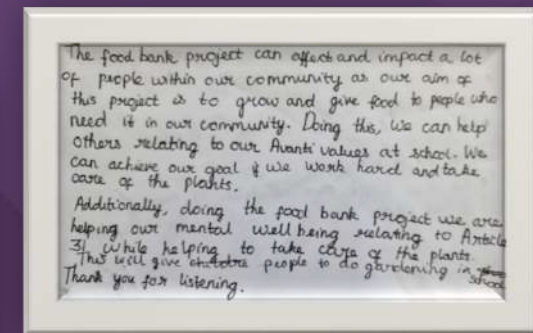 The food bank project can affect and impact a lot
of people within our community as our aim of
this project is to grow and give food to people who
need it in our community. Doing this, we can help
others relating to our Avanti values at school. We
can achieve our goal if we work hard and take
care of the plants.
Additionally, doing the food bank project we are
helping our mental well being relating to Article
31 while helping to take care of the plants.
This will give people to do gardening in school
Thank you for listening.